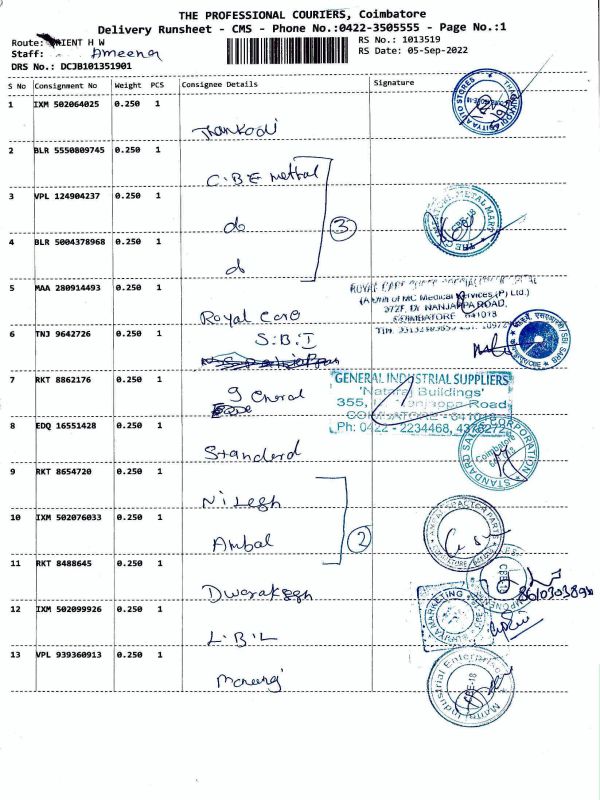 THE PROFESSIONAL COURIERS, Coimbatore
Delivery Runsheet - CMS - Phone No.:0422-3505555 - Page No.:1
Route: RIENT H W
RS No.: 1013519
Staff: Ameena
RS Date: 05-Sep-2022
DRS No.: DCJB101351901
S No Consignment No Weight PCS Consignee Details Signature
1 IXM 502064025 0.250 1
2 BLR 5550809745 0.250 1
C.B.E mettal
3 VPL 124904237 0.250 1
do
4 BLR 5004378968 0.250 1
do
3
5 MAA 280914493 0.250 1
Royal Care
(A Unit of MC Medical Services (P) Ltd.)
372F, Dr. NANJAPPA ROAD,
COIMBATORE 641018
6 TNJ 9642726 0.250 1
S.B.I
7 RKT 8862176 0.250 1
GENERAL INDUSTRIAL SUPPLIERS
'Nataraj Buildings'
355, Nanjappa Road
COIMBATORE - 641018
Ph: 0422 - 2234468, 4378272
8 EDQ 16551428 0.250 1
Standerd
STANDARD SALES CORPORATION
Coimbatore
9 RKT 8654720 0.250 1
Nilesh
10 IXM 502076033 0.250 1
Ambal
2
11 RKT 8488645 0.250 1
CBE-18
12 IXM 502099926 0.250 1
L.B.L
MARKETING
13 VPL 939360913 0.250 1
Industrial Enterprise
CBE-18